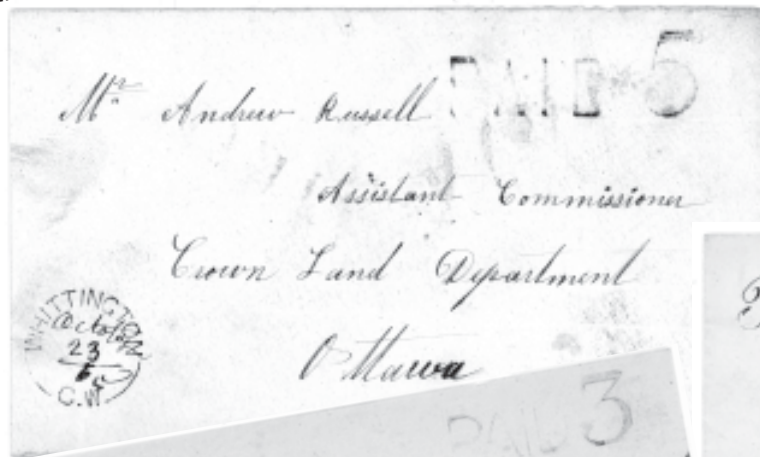 PAID 5
Mr. Andrew Russell
Assistant Commissioner
Crown Land Department
Ottawa
October
23
C.W.
PAID 3